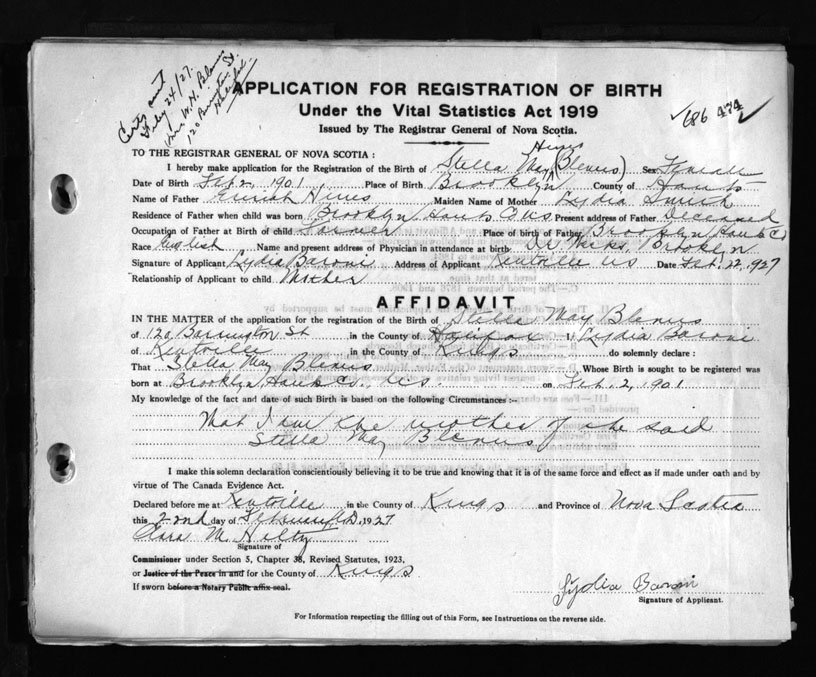 Certif. sent
Feby 24/27.
Mrs W. H. Blenus
120 Barrington St.
Halifax
APPLICATION FOR REGISTRATION OF BIRTH
Under the Vital Statistics Act 1919
Issued by The Registrar General of Nova Scotia.
✓686 474 ✓
TO THE REGISTRAR GENERAL OF NOVA SCOTIA :
Hines
I hereby make application for the Registration of the Birth of Stella May (Blenus) Sex Female
Date of Birth Feb 2, 1901 Place of Birth Brooklyn County of Hants
Name of Father Hines Maiden Name of Mother Lydia
Residence of Father when child was born Brooklyn Hants Co NS Present address of Father Deceased
Occupation of Father at Birth of child Farmer Place of birth of Father Brooklyn Hants Co
Race English Name and present address of Physician in attendance at birth: Dr. Brooklyn
Signature of Applicant Lydia Baroni Address of Applicant Kentville NS Date Feb. 22, 1927
Relationship of Applicant to child Mother
AFFIDAVIT
IN THE MATTER of the application for the registration of the Birth of Stella May Blenus
of 120 Barrington St in the County of Halifax I Lydia Baroni
of Kentville in the County of Kings do solemnly declare :
That Stella May Blenus , Whose Birth is sought to be registered was
born at Brooklyn, Hants Co., N.S. on Feb. 2, 1901
My knowledge of the fact and date of such Birth is based on the following Circumstances :-
That I am the mother of the said
Stella May Blenus
I make this solemn declaration conscientiously believing it to be true and knowing that it is of the same force and effect as if made under oath and by
virtue of The Canada Evidence Act.
Declared before me at Kentville in the County of Kings and Province of Nova Scotia
this 22nd day of February A.D. 1927
Clara M. Hiltz
Signature of
Commissioner under Section 5, Chapter 38, Revised Statutes, 1923,
or Justice of the Peace in and for the County of Kings
If sworn before a Notary Public affix seal.
Lydia Baroni
Signature of Applicant.
For Information respecting the filling out of this Form, see Instructions on the reverse side.